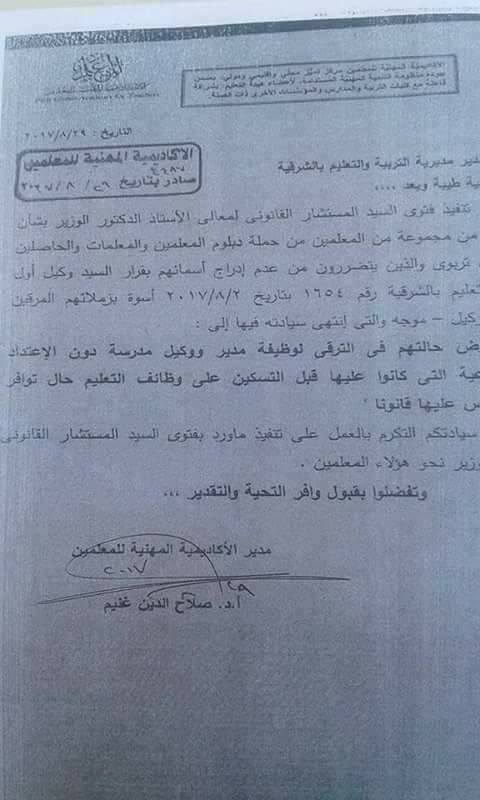 الأكاديمية المهنية للمعلمين مركز تميز محلي وإقليمي ودولي، يضمن
جودة منظومة التنمية المهنية المستدامة، لأعضاء هيئة التعليم، بشراكة
فاعلة مع كليات التربية والمدارس والمؤسسات الأخرى ذات الصلة.
Professional Academy for Teachers
التاريخ : ٢٠١٧/٨/٢٩
الأكاديمية المهنية للمعلمين
صادر بتاريخ ٢٩ / ٨ /
دير مديرية التربية والتعليم بالشرقية
ية طيبة وبعد ....
تنفيذ فتوى السيد المستشار القانونى لمعالى الأستاذ الدكتور الوزير بشأن
من مجموعة من المعلمين من حملة دبلوم المعلمين والمعلمات والحاصلين
تربوى والذين يتضررون من عدم إدراج أسمائهم بقرار السيد وكيل أول
تعليم بالشرقية رقم ١٦٥٤ بتاريخ ٢٠١٧/٨/٢ أسوة بزملائهم المرقين
ركيل - موجه والتى إنتهى سيادته فيها إلى :
ض حالتهم فى الترقى لوظيفة مدير ووكيل مدرسة دون الإعتداد
عية التى كانوا عليها قبل التسكين على وظائف التعليم حال توافر
س عليها قانونا "
سيادتكم التكرم بالعمل على تنفيذ ماورد بفتوى السيد المستشار القانونى
وزير نحو هؤلاء المعلمين .
وتفضلوا بقبول وافر التحية والتقدير ...
مدير الأكاديمية المهنية للمعلمين
٢٠١٧
أ.د. صلاح الدين غنيم